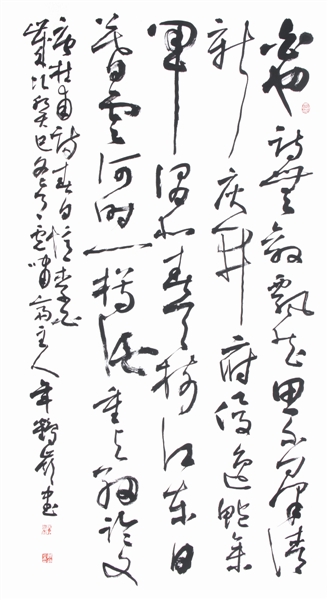 白也詩無敵飄然思不羣清
新庾開府俊逸鮑參
軍渭北春天樹江東日
暮雲何時一樽酒重与細論文
唐杜甫詩春日憶李白
歲次癸巳冬雲嘯齋主人年鶴嶺書